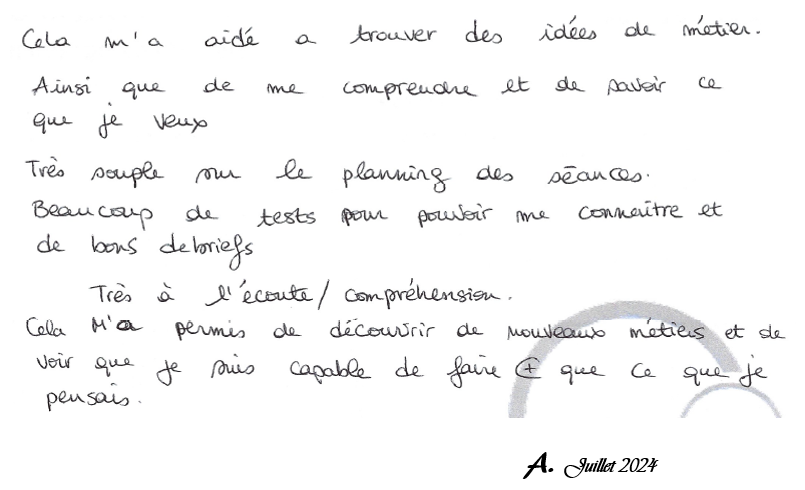 Cela m'a aidé a trouver des idées de métier.
Ainsi que de me comprendre et de savoir ce
que je veux
Très souple sur le planning des séances.
Beaucoup de tests pour pouvoir me connaître et
de bons debriefs
Très à l'écoute / compréhension.
Cela M'a permis de découvrir de nouveaux métiers et de
voir que je suis capable de faire ⊕ que ce que je
pensais.
A. Juillet 2024